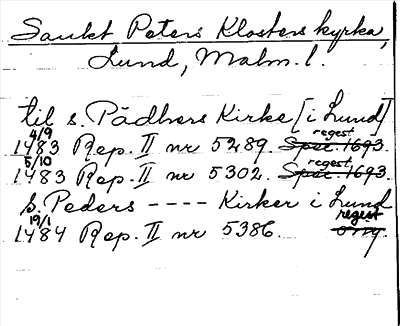 Sankt Peters Klosters kyrka,
Lund, Malm. l.
til s. Pädhers Kirke [i Lund]
4/9 regest
1483 Rep. II nr 5289. Spec. 1693.
5/10 regest
1483 Rep. II nr 5302. Spec. 1693.
S. Peders ---- Kirker i Lund
19/1 regest
1484 Rep. II nr 5386. orig.